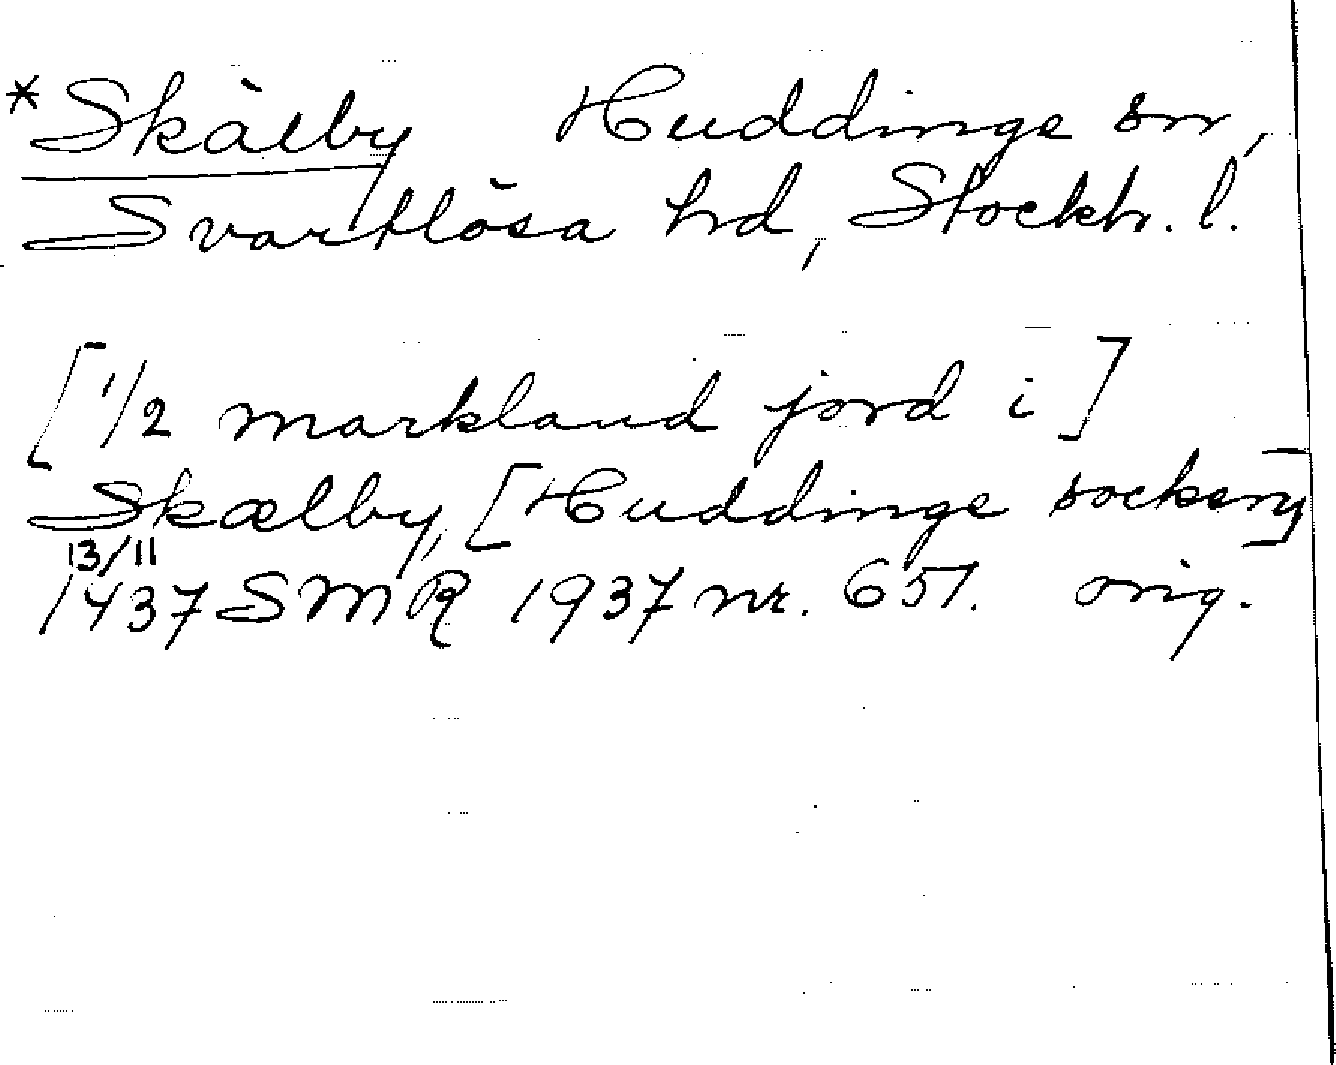 *Skälby Huddinge sn,
Svartlösa hd, Stockh. l.
[1/2 markland jord i]
Skælby, [Huddinge socken]
13/11
1437 SMR 1937 nr. 651. orig.